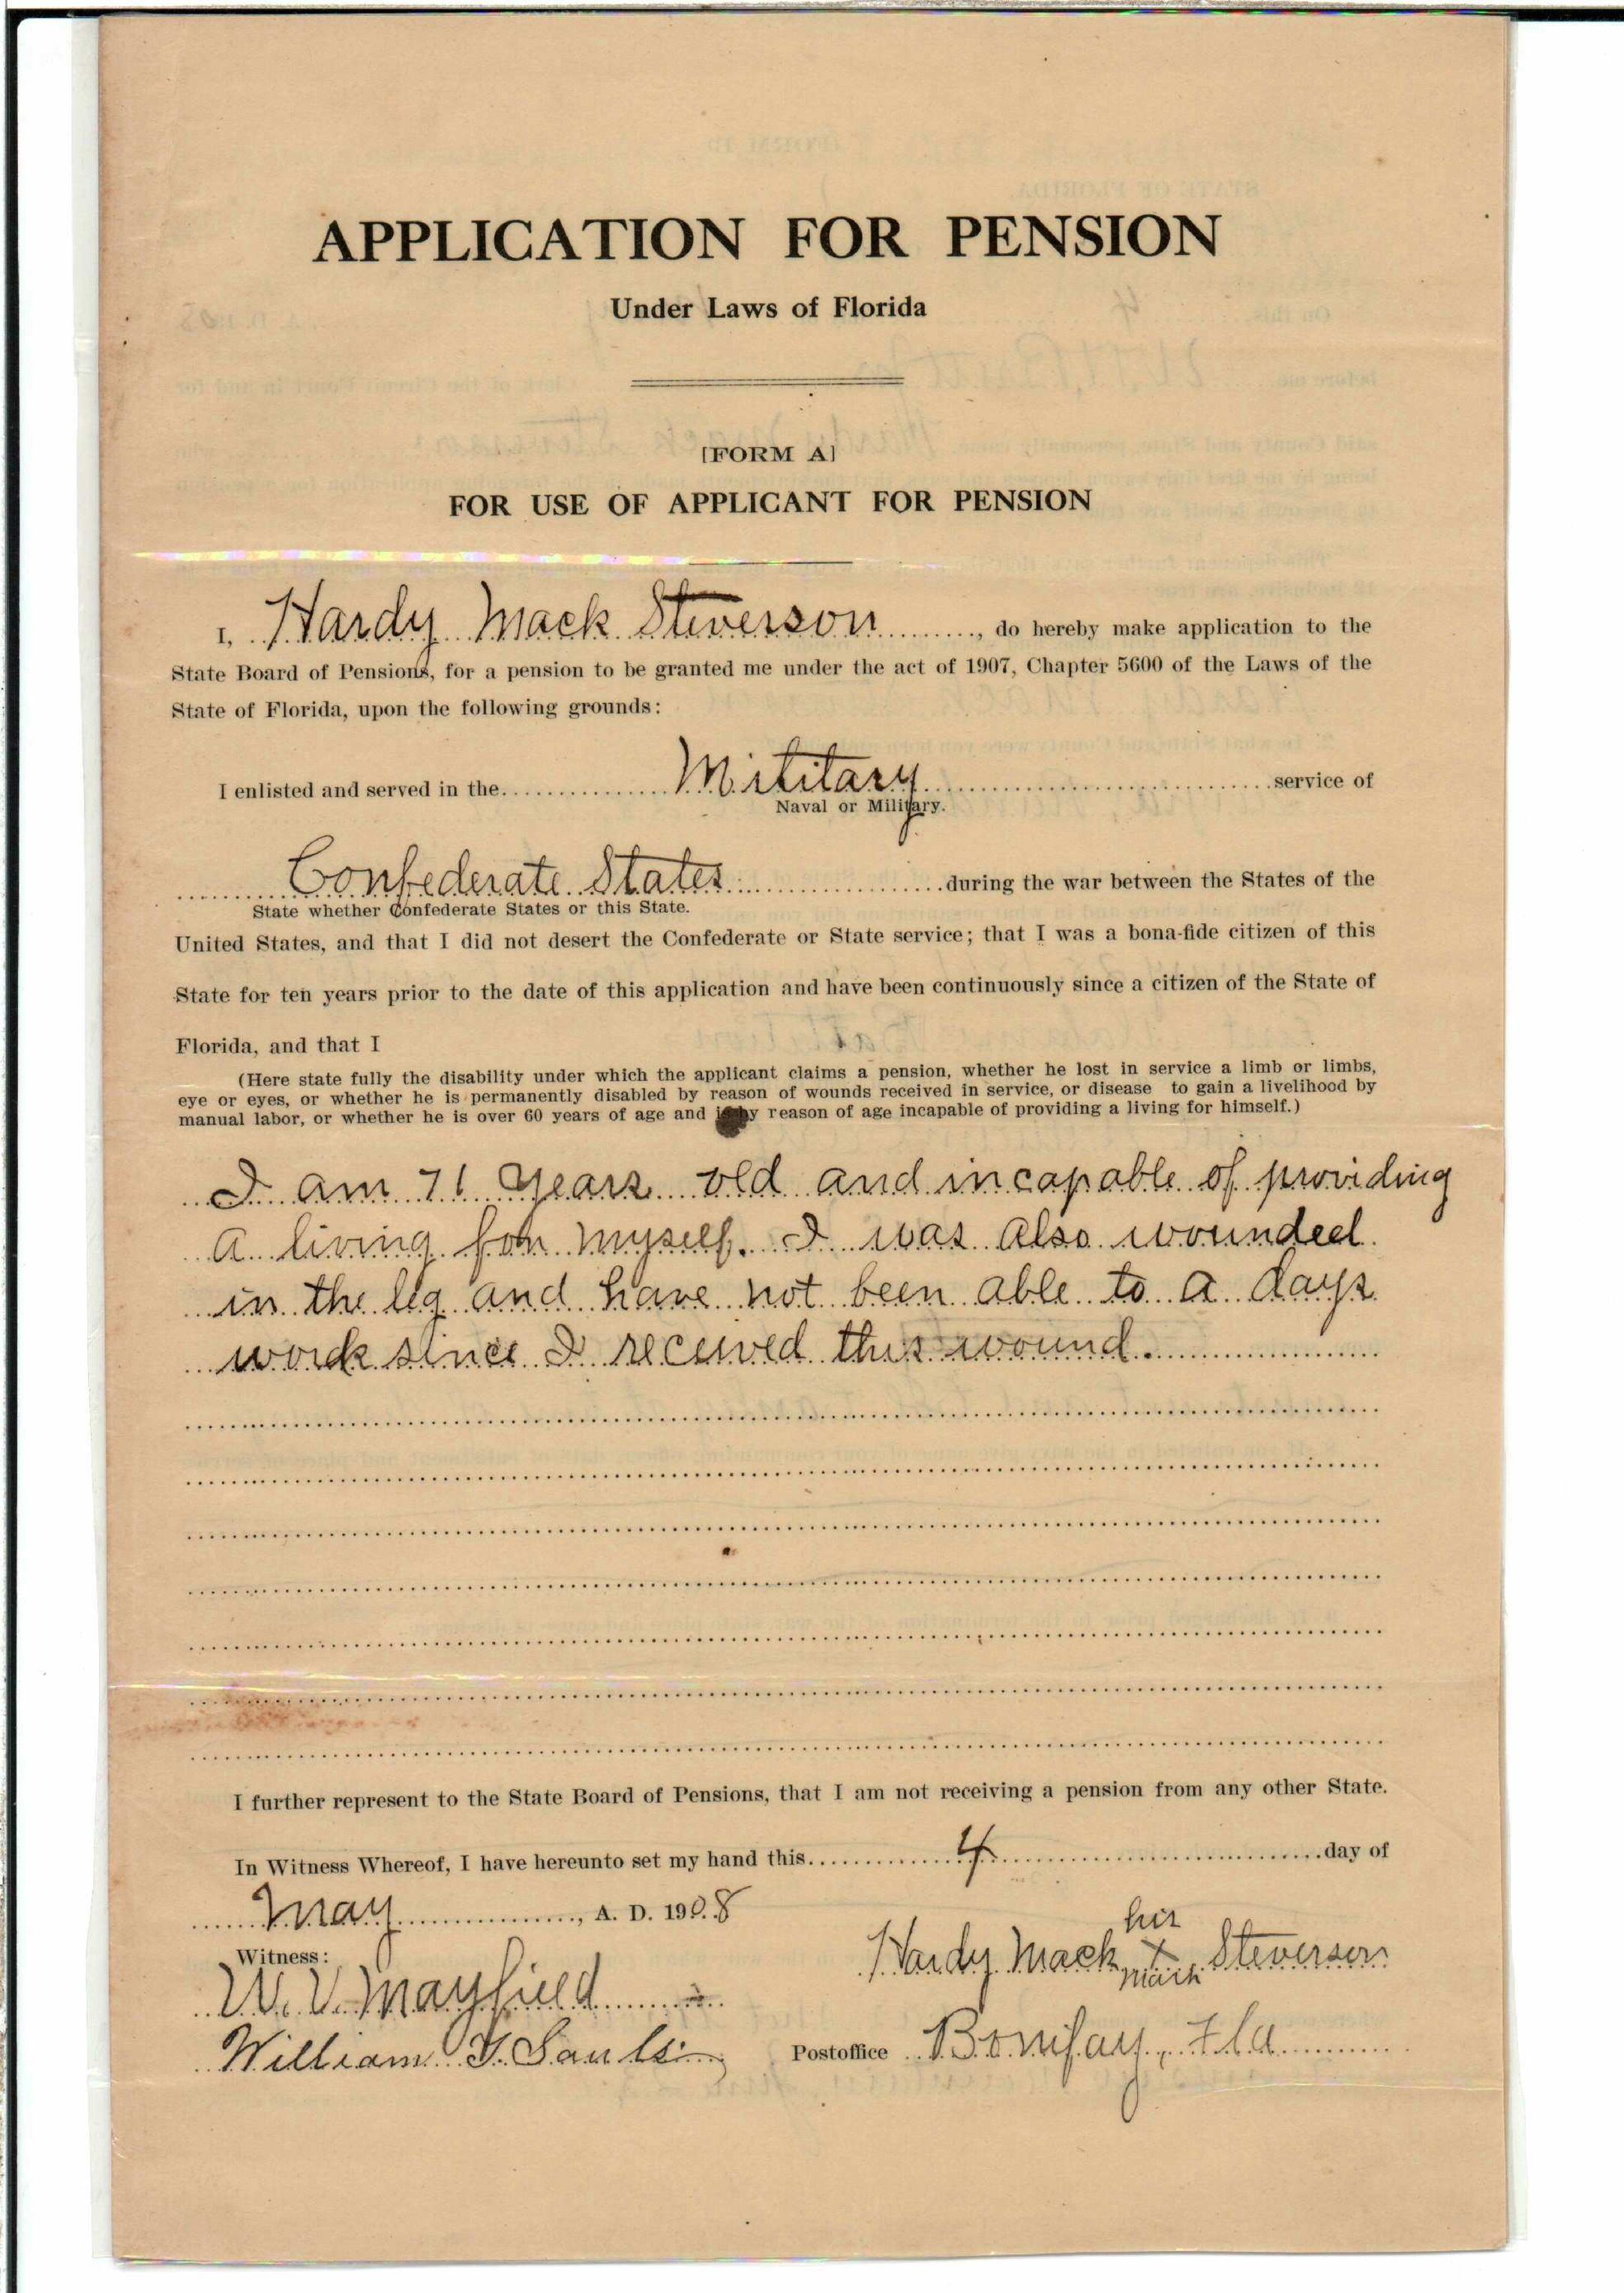 APPLICATION FOR PENSION
Under Laws of Florida
[FORM A]
FOR USE OF APPLICANT FOR PENSION
I, Hardy Mack Steverson, do hereby make application to the
State Board of Pensions, for a pension to be granted me under the act of 1907, Chapter 5600 of the Laws of the
State of Florida, upon the following grounds:
I enlisted and served in the Military service of
Naval or Military.
Confederate States during the war between the States of the
State whether Confederate States or this State.
United States, and that I did not desert the Confederate or State service; that I was a bona-fide citizen of this
State for ten years prior to the date of this application and have been continuously since a citizen of the State of
Florida, and that I
(Here state fully the disability under which the applicant claims a pension, whether he lost in service a limb or limbs,
eye or eyes, or whether he is permanently disabled by reason of wounds received in service, or disease to gain a livelihood by
manual labor, or whether he is over 60 years of age and by reason of age incapable of providing a living for himself.)
I am 71 years old and incapable of providing
a living for myself. I was also wounded
in the leg and have not been able to a days
work since I received this wound.
I further represent to the State Board of Pensions, that I am not receiving a pension from any other State.
In Witness Whereof, I have hereunto set my hand this 4 day of
May, A. D. 1908
his
Witness: Hardy Mack x Steverson
mark
W. V. Mayfield
William Sauls Postoffice Bonifay, Fla